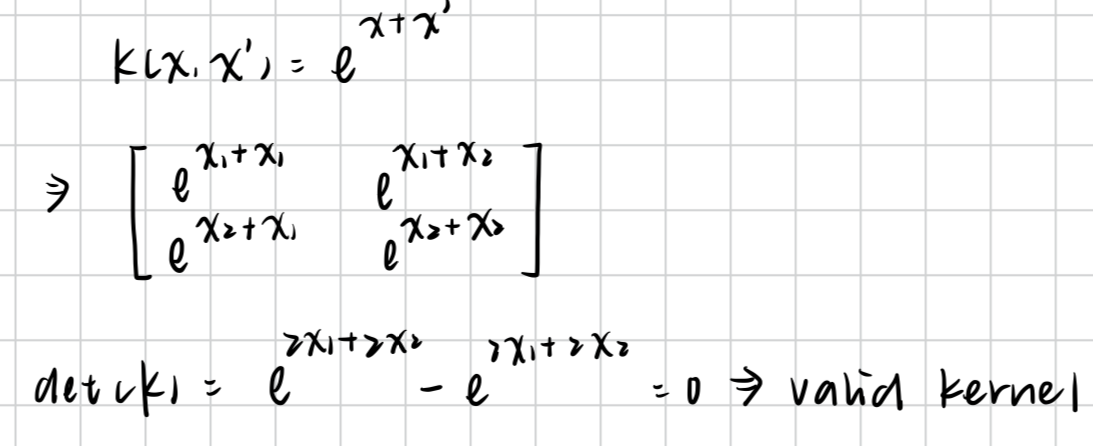 k(x, x') = e^{x+x'}
⇒ [ e^{x₁+x₁} e^{x₁+x₂}
e^{x₂+x₁} e^{x₂+x₂} ]
det(k) = e^{2x₁+2x₂} - e^{2x₁+2x₂} = 0 ⇒ valid kernel